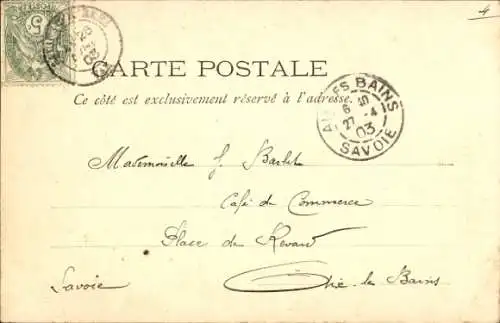 4
5
CARTE POSTALE
Ce côté est exclusivement réservé à l'adresse.
AIX-LES-BAINS
6 40
27 -4
03
SAVOIE
Mademoiselle J. Barlet
Café du Commerce
Place du Revard
Savoie Aix-les-Bains